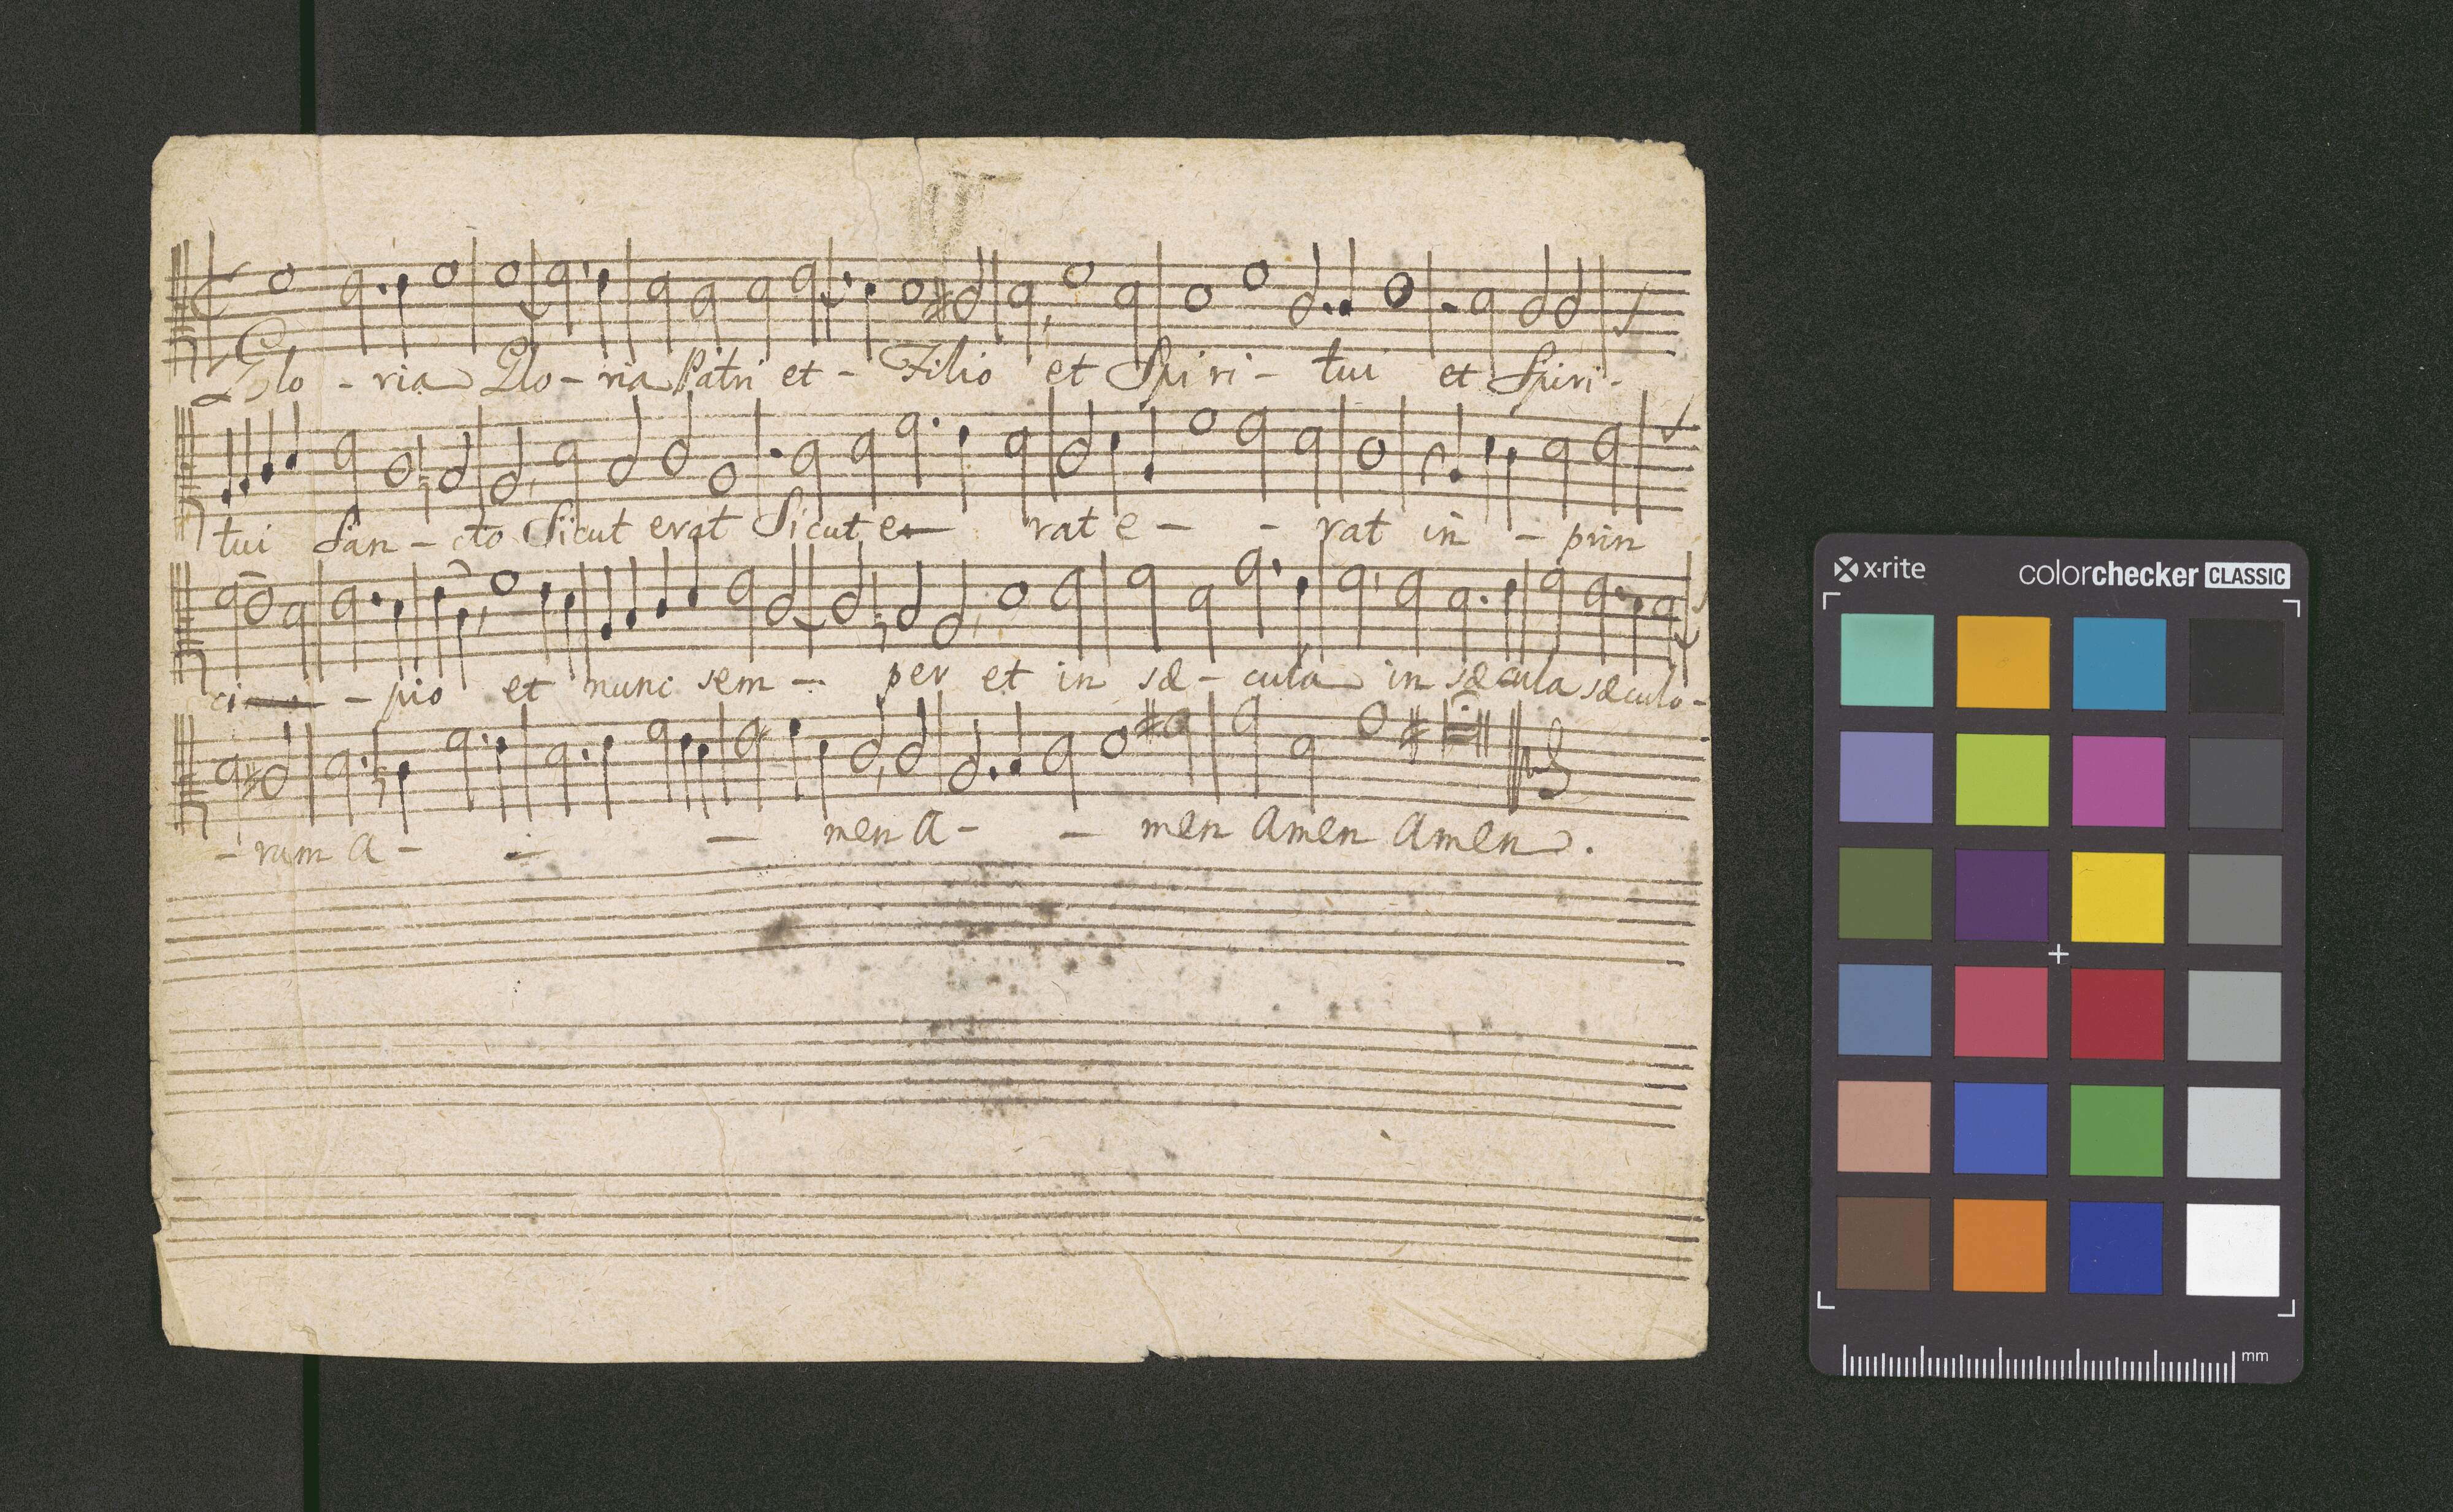 Glo - ria Glo - ria Patri et - Filio et Spiri - tui et Spiri -
tui San - cto Sicut erat Sicut e - rat e - - rat in - prin
ci - pio et nunc sem - per et in sæ - cula in sæcula sæculo -
- rum a - - - men a - - men amen amen.
x-rite
colorchecker CLASSIC
mm